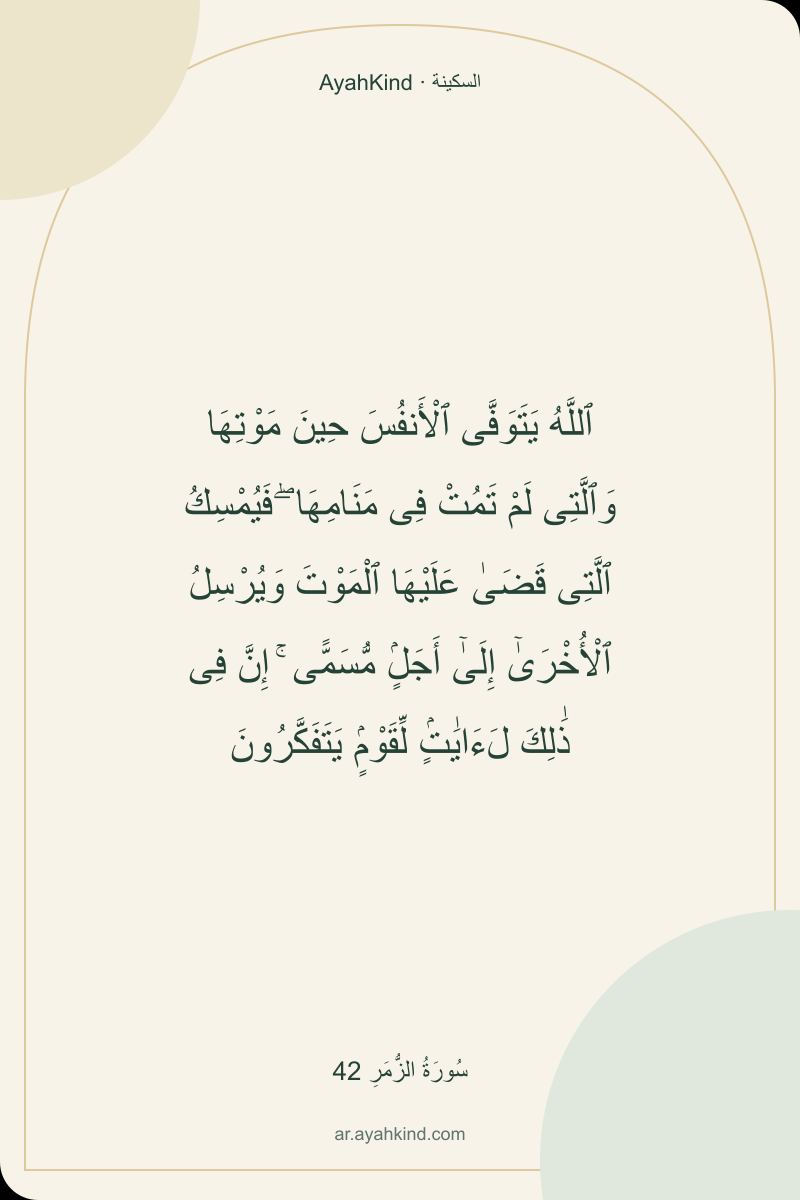 السكينة · AyahKind
ٱللَّهُ يَتَوَفَّى ٱلْأَنفُسَ حِينَ مَوْتِهَا
وَٱلَّتِى لَمْ تَمُتْ فِى مَنَامِهَا ۖ فَيُمْسِكُ
ٱلَّتِى قَضَىٰ عَلَيْهَا ٱلْمَوْتَ وَيُرْسِلُ
ٱلْأُخْرَىٰٓ إِلَىٰٓ أَجَلٍۢ مُّسَمًّى ۚ إِنَّ فِى
ذَٰلِكَ لَـَٔايَـٰتٍۢ لِّقَوْمٍۢ يَتَفَكَّرُونَ
سُورَةُ الزُّمَرِ 42
ar.ayahkind.com